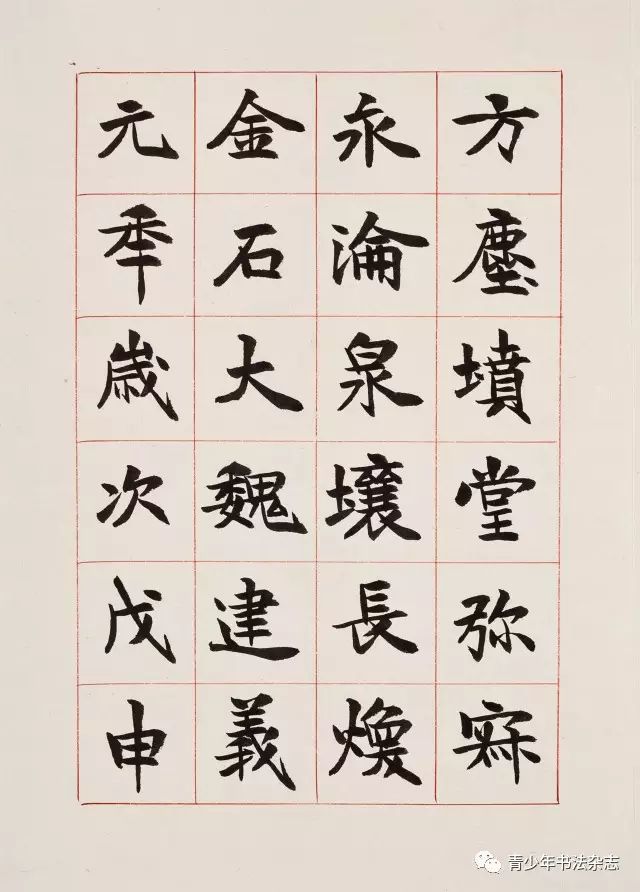 方塵墳堂弥寐
永淪泉壤長煥
金石大魏建義
元秊歳次戊申
青少年书法杂志